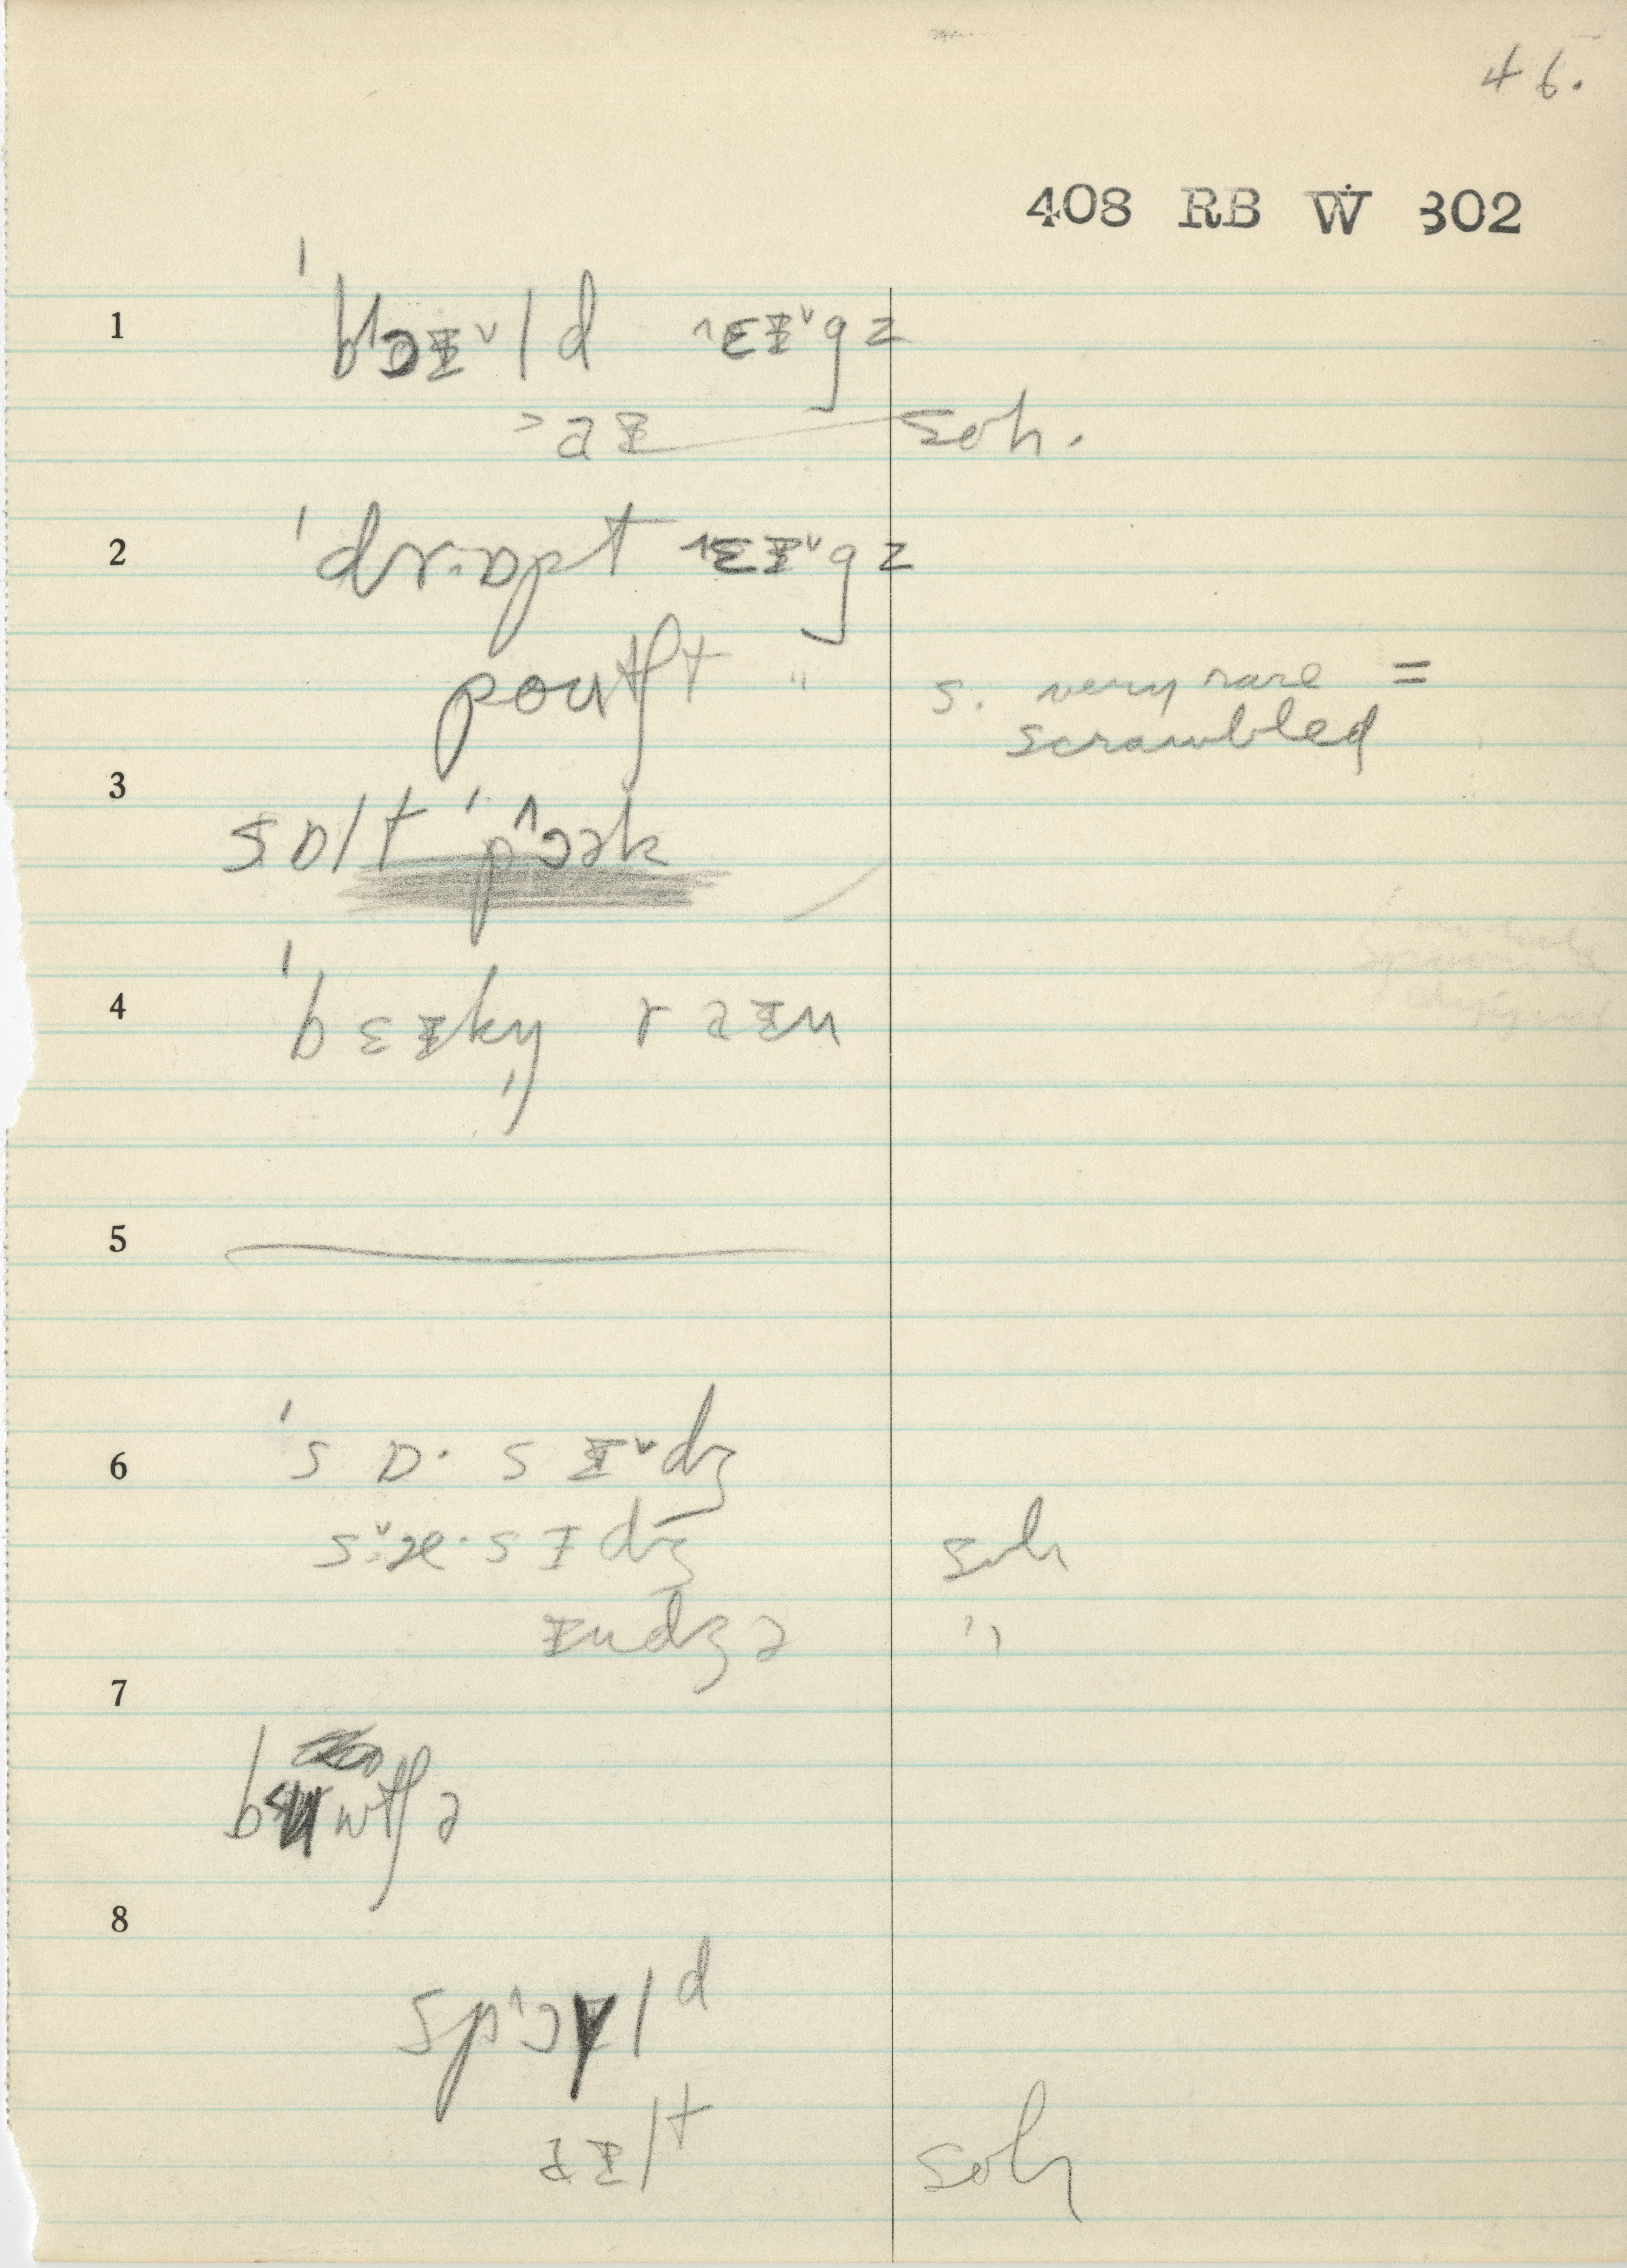 46.
408 RB W 302
1 ˈbɔɪ˅ld ˄ɛɪ˅gz
˃aɪ soh.
2 ˈdrɒpt ˄ɛɪ˅gz
poutʃt " s. very rare =
scrambled
3 sɒlt ˈp˄ɔək
4 ˈbɛɪkn̩ rəɪn
5
6 ˈs ɒ· s ɪ˅dʒ
s æ· s ɪ dʒ soh
ɪndʒə "
7
b wtʃə
8
sp˄ɔɪld
aɪlt soh